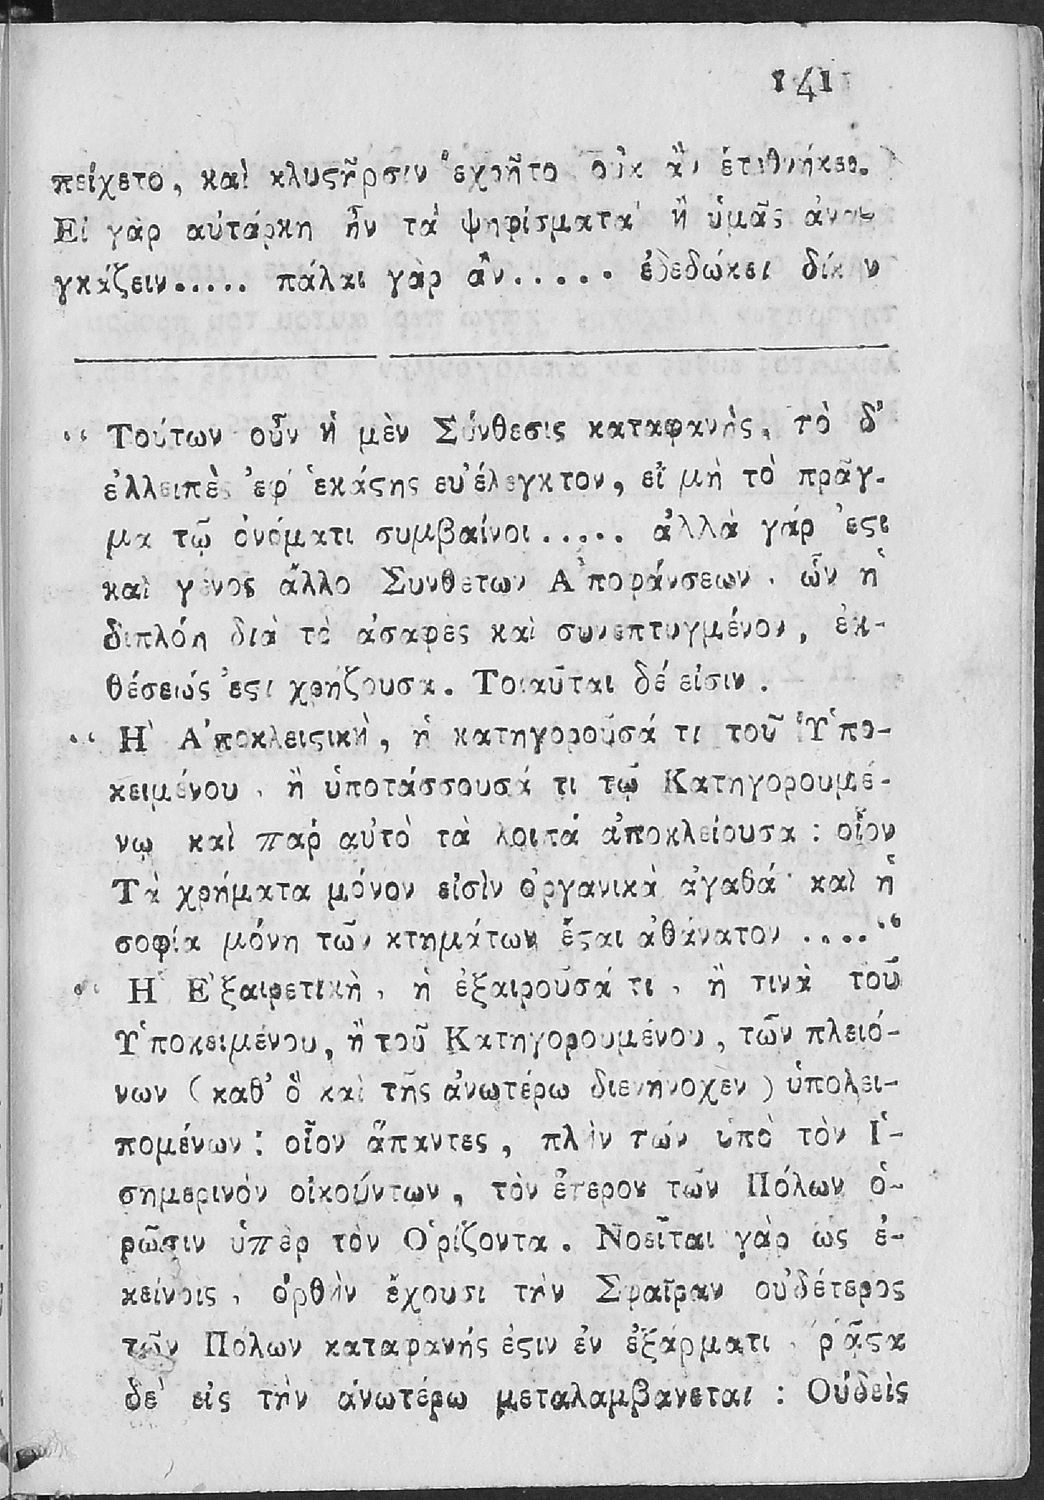 141
πείχετο, καὶ κλυςῆρσιν ἐχρῆτο οὐκ ἂν ἐτεθνήκεε.
Εἰ γὰρ αὐτάρκη ἦν τὰ ψηφίσματα ἢ ὑμᾶς ἀνα-
γκάζειν..... πάλαι γὰρ ἂν...... ἐδεδώκει δίκην
“ Τούτων οὖν ἡ μὲν Σύνθεσις καταφανὴς, τὸ δ'
ἐλλειπὲς ἐφ' ἑκάςης εὐέλεγκτον, εἰ μὴ τὸ πρᾶγ-
μα τῷ ὀνόματι συμβαίνοι..... ἀλλὰ γάρ ἐςι
καὶ γένος ἄλλο Συνθετων Ἀποφάνσεων, ὧν ἡ
διπλόη διὰ τὸ ἀσαφὲς καὶ συνεπτυγμένον, ἐκ-
θέσεώς ἐςι χρῄζουσα. Τοιαῦται δέ εἰσιν.
“ Ἡ Ἀποκλειςικὴ, ἡ κατηγοροῦσά τι τοῦ Ὑπο-
κειμένου, ἢ ὑποτάσσουσά τι τῷ Κατηγορουμέ-
νῳ καὶ παρ αὐτὸ τὰ λοιπά ἀποκλείουσα: οἷον
Τὰ χρήματα μόνον εἰσὶν ὀργανικὰ ἀγαθά· καὶ ἡ
σοφία μόνη τῶν κτημάτων ἔςαι ἀθάνατον ....“
“ Ἡ Ἐξαιρετικὴ, ἡ ἐξαιροῦσά τι, ἢ τινὰ τοῦ
Ὑποκειμένου, ἢ τοῦ Κατηγορουμένου, τῶν πλειό-
νων (καθ' ὃ καὶ τῆς ἀνωτέρω διενήνοχεν) ὑπολει-
πομένων: οἷον ἅπαντες, πλὴν τῶν ὑπὸ τὸν Ἰ-
σημερινὸν οἰκούντων, τὸν ἕτερον τῶν Πόλων ὁ-
ρῶσιν ὑπὲρ τὸν Ὁρίζοντα. Νοεῖται γὰρ ὡς ἐ-
κείνοις, ὀρθὴν ἔχουσι τὴν Σφαῖραν οὐδέτερος
τῶν Πόλων καταφανής ἐςιν ἐν ἐξάρματι, ῥᾷςα
δὲ εἰς τὴν ἀνωτέρω μεταλαμβάνεται: Οὐδεὶς